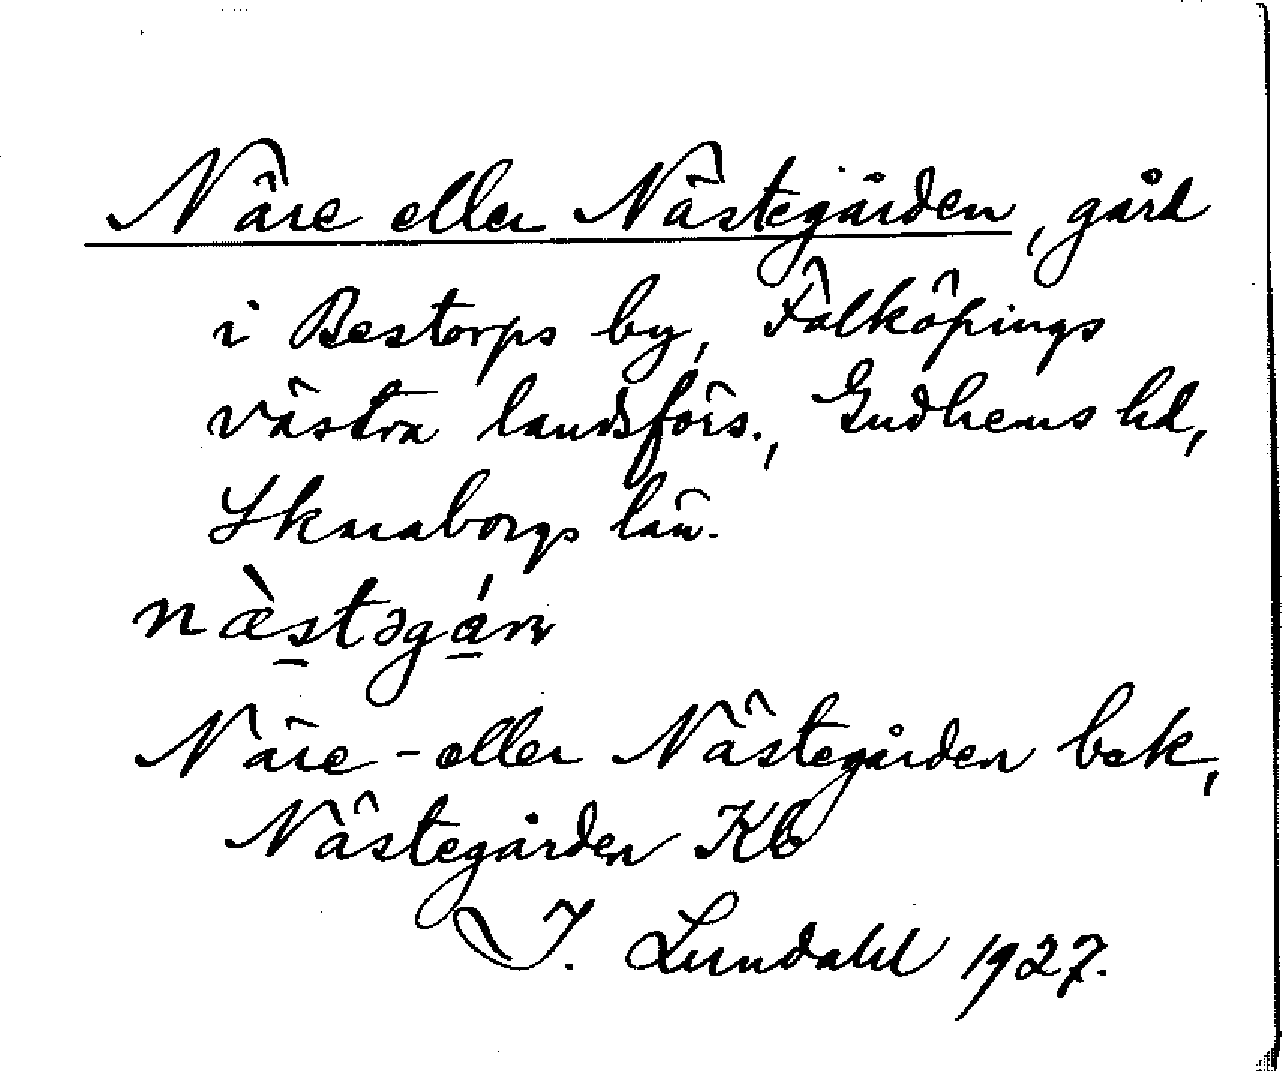 Näre eller Nästegården, gård
i Bestorps by, Falköpings
västra landsförs., Gudhems hd,
Skaraborgs län.
næ̀stəgá̱rn
Näre- eller Nästegården bok,
Nästegården Kb
I. Lundahl 1927.